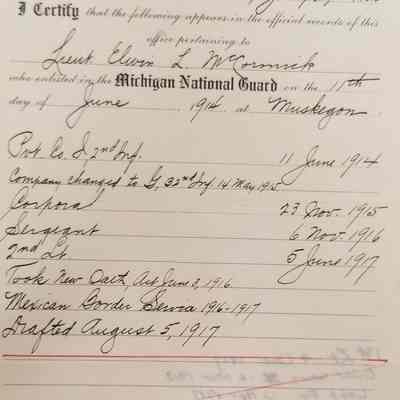 I Certify that the following appears in the official records of this
office pertaining to
Lieut. Elwin L. McCormick
who enlisted in the Michigan National Guard on the 11th
day of June 1914 at Muskegon.
Pvt. Co. I, 2nd Inf. 11 June 1914
Company changed to G, 32nd Inf 14 May 1915
Corporal 23 Nov. 1915
Sergeant 6 Nov. 1916
2nd Lt. 5 June 1917
Took New Oath, Act June 3, 1916
Mexican Border Service 1916-1917
Drafted August 5, 1917